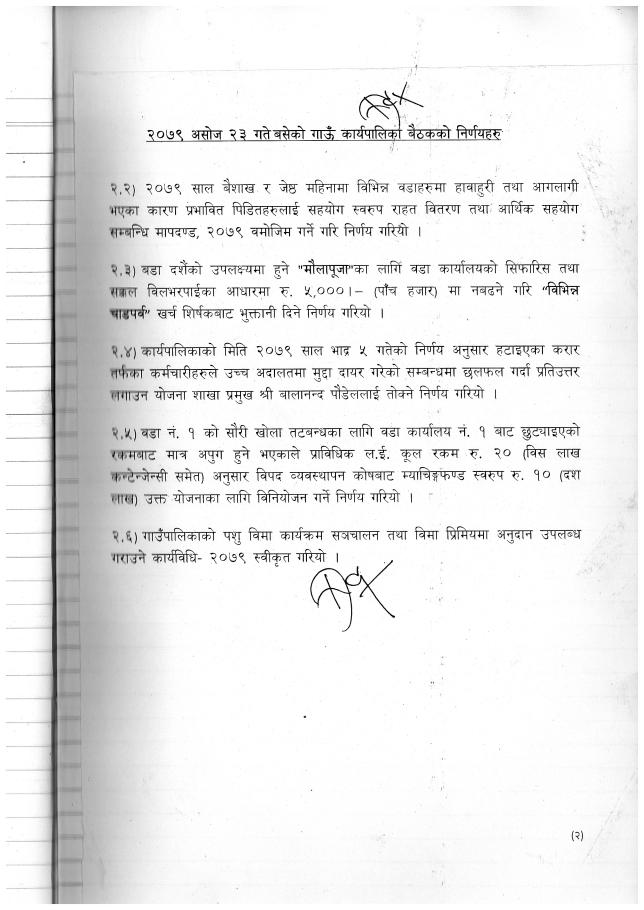 २०७९ असोज २३ गते बसेको गाऊँ कार्यपालिका बैठकको निर्णयहरु
२.२) २०७९ साल बैशाख र जेष्ठ महिनामा विभिन्न वडाहरुमा हावाहुरी तथा आगलागी
भएका कारण प्रभावित पिडितहरुलाई सहयोग स्वरुप राहत वितरण तथा आर्थिक सहयोग
सम्बन्धि मापदण्ड, २०७९ वमोजिम गर्ने गरि निर्णय गरियो ।
२.३) बडा दशैंको उपलक्ष्यमा हुने "मौलापूजा"का लागि वडा कार्यालयको सिफारिस तथा
सक्कल विलभरपाईका आधारमा रु. ५,०००।– (पाँच हजार) मा नबढने गरि "विभिन्न
चाडपर्व" खर्च शिर्षकबाट भुक्तानी दिने निर्णय गरियो ।
२.४) कार्यपालिकाको मिति २०७९ साल भाद्र ५ गतेको निर्णय अनुसार हटाइएका करार
तर्फका कर्मचारीहरुले उच्च अदालतमा मुद्दा दायर गरेको सम्बन्धमा छलफल गर्दा प्रतिउत्तर
लगाउन योजना शाखा प्रमुख श्री बालानन्द पौडेललाई तोक्ने निर्णय गरियो ।
२.५) वडा नं. १ को सौरी खोला तटबन्धका लागि वडा कार्यालय नं. १ बाट छुट्याइएको
रकमबाट मात्र अपुग हुने भएकाले प्राविधिक ल.ई. कूल रकम रु. २० (विस लाख
कन्टेन्जेन्सी समेत) अनुसार विपद व्यवस्थापन कोषबाट म्याचिङ्गफण्ड स्वरुप रु. १० (दश
लाख) उक्त योजनाका लागि विनियोजन गर्ने निर्णय गरियो ।
२.६) गाउँपालिकाको पशु विमा कार्यक्रम सञ्चालन तथा विमा प्रिमियममा अनुदान उपलब्ध
गराउने कार्यविधि- २०७९ स्वीकृत गरियो ।
(२)